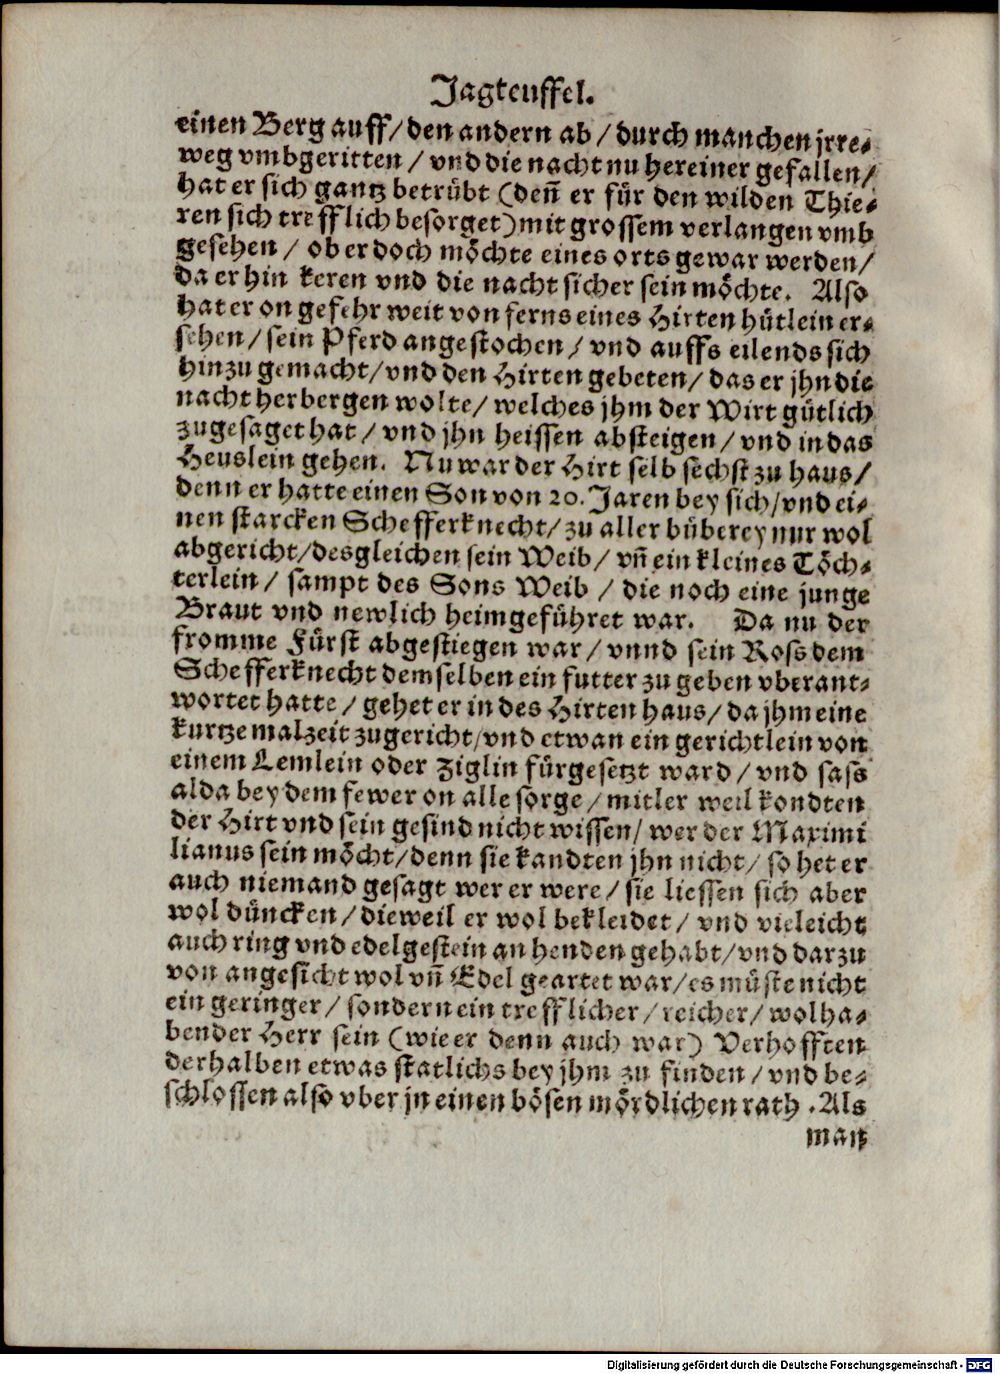 Jagteuffel.
einen Berg auff/den andern ab/durch manchen jrre-
weg vmbgeritten/vnd die nacht nu hereiner gefallen/
hat er sich gantz betrübt (deñ er für den wilden Thie-
ren sich trefflich besorget) mit grossem verlangen vmb
gesehen/ob er doch möchte eines orts gewar werden/
da er hin keren vnd die nacht sicher sein möchte. Also
hat er on gefehr weit von ferns eines Hirten hütlein er-
sehen/sein Pferd angestochen/vnd auffs eilends sich
hinzu gemacht/vnd den Hirten gebeten/das er jhn die
nacht herbergen wolte/welches jhm der Wirt gütlich
zugesaget hat/vnd jhn heissen absteigen/vnd in das
Heuslein gehen. Nu war der Hirt selb sechst zu haus/
denn er hatte einen Son von 20. Jaren bey sich/vnd ei-
nen starcken Schefferknecht/zu aller büberey nur wol
abgericht/desgleichen sein Weib/vñ ein kleines Töch-
terlein/sampt des Sons Weib/die noch eine junge
Braut vnd newlich heimgeführet war. Da nu der
fromme Fürst abgestiegen war/vnnd sein Ross dem
Schefferknecht demselben ein futter zu geben vberant-
wortet hatte/gehet er in des Hirten haus/da jhm eine
kurtze malzeit zugericht/vnd etwan ein gerichtlein von
einem Lemlein oder Ziglin fürgesetzt ward/vnd sass
alda bey dem fewer on alle sorge/mitler weil kondten
der Hirt vnd sein gesind nicht wissen/wer der Maximi
lianus sein möcht/denn sie kandten jhn nicht/so het er
auch niemand gesagt wer er were/sie liessen sich aber
wol düncken/dieweil er wol bekleidet/vnd vieleicht
auch ring vnd edelgestein an henden gehabt/vnd darzu
von angesicht wol vñ Edel geartet war/es müste nicht
ein geringer/sondern ein trefflicher/reicher/wolha-
bender Herr sein (wie er denn auch war) Verhofften
derhalben etwas statlichs bey jhm zu finden/vnd be-
schlossen also vber jn einen bösen mördlichen rath. Als
man
Digitalisierung gefördert durch die Deutsche Forschungsgemeinschaft - DFG